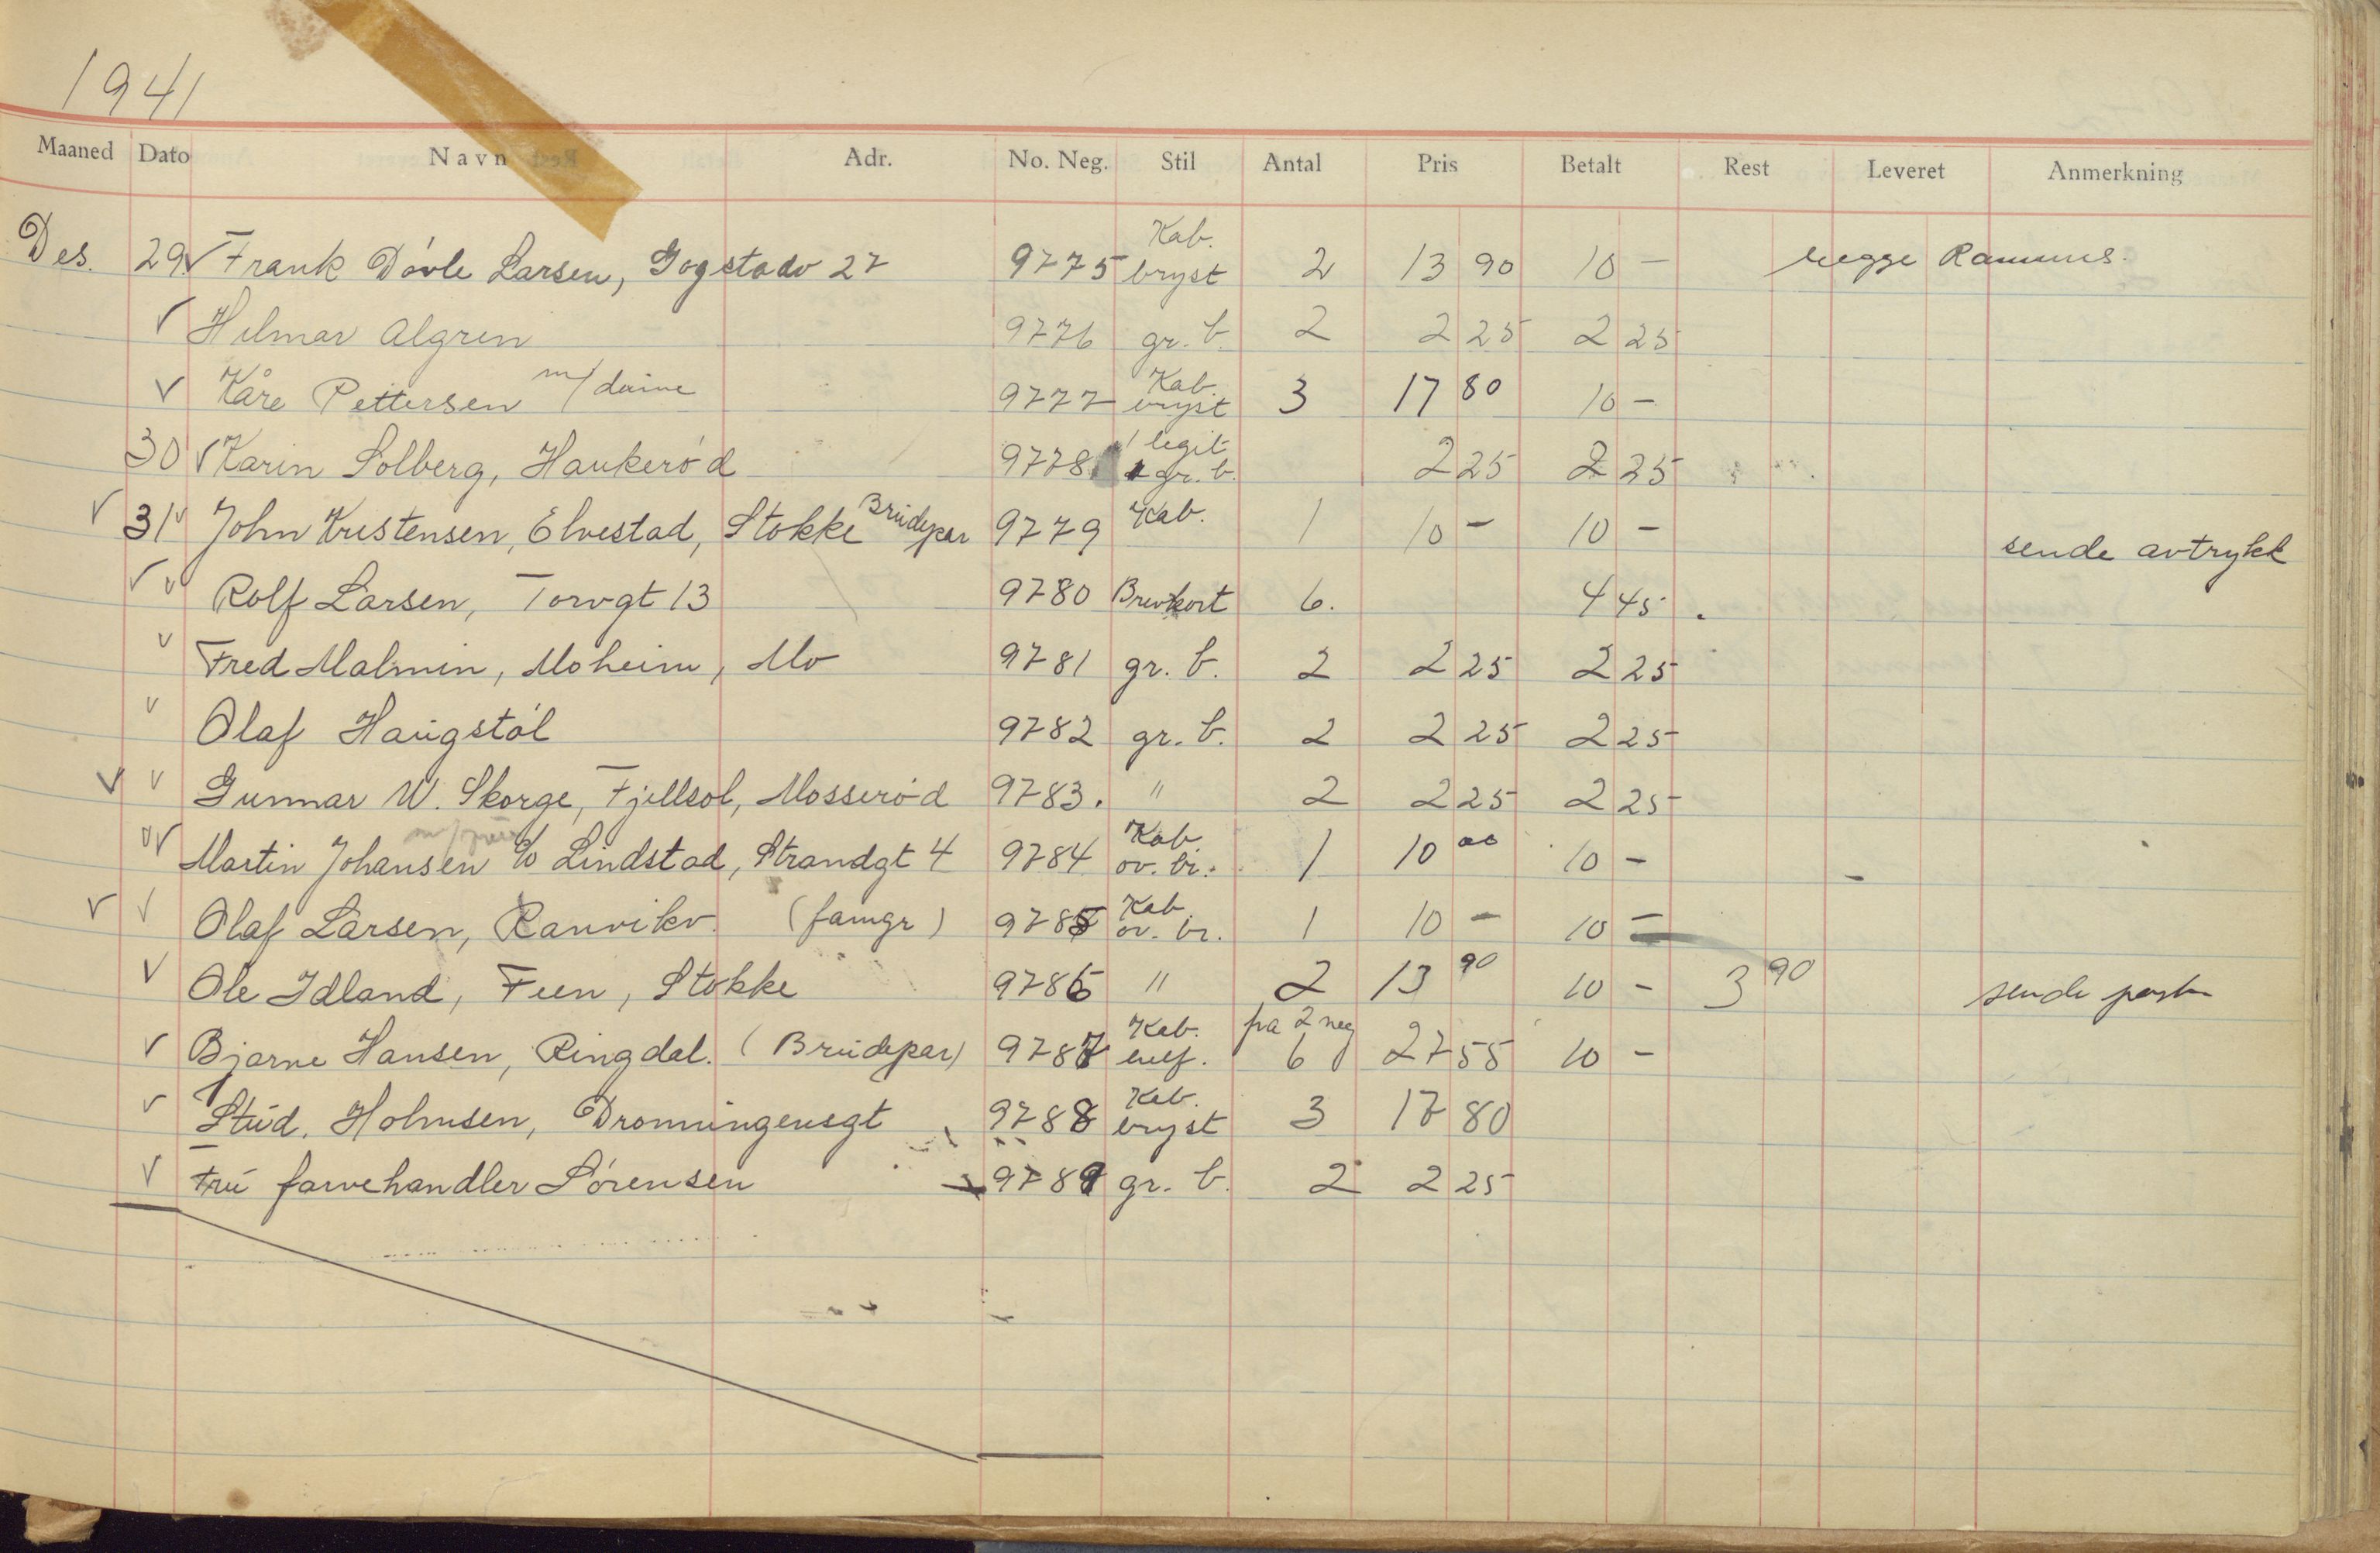 1941
Maaned Dato Navn Adr. No. Neg. Stil Antal Pris Betalt Rest Leveret Anmerkning
Des. 29. √ Frank Døvle Larsen, Gogstadv 27 9775 Kab. bryst 2 13 90 10 - begge Rammes.
√ Hilmar Algren 9776 gr. b. 2 2 25 2 25
√ Kåre Pettersen m/ dame 9777 Kab. bryst 3 17 80 10 -
30 √ Karin Solberg, Haukerød 9778 1 legit 1 gr. b. 2 25 2 25
√ 31 √ John Kristensen, Elvestad, Stokke Brudepar 9779 Kab. 1 10 - 10 - sende avtrykk
√ √ Rolf Larsen, Torvgt 13 9780 Brevkort 6. 4 45
√ Fred Malmin, Moheim, Mo 9781 gr. b. 2 2 25 2 25
√ Olaf Haugstøl 9782 gr. b. 2 2 25 2 25
√ √ Gunnar W. Skorge, Fjellsol, Mosserød 9783. " 2 2 25 2 25
√ √ Martin Johansen c/o Lindstad, Strandgt 4 9784 Kab. ov. br. 1 10 00 10 -
√ √ Olaf Larsen, Ranvikv. (famgr) 9785 Kab. ov. br. 1 10 - 10 -
√ Ole Idland, Feen, Stokke 9786 " 2 13 90 10 - 3 90 sende post
√ Bjarne Hansen, Ringdal. (Brudepar) 9787 Kab. helf. på 2 neg 6 27 55 10 -
√ Stud. Holmsen, Dronningensgt 9788 Kab. bryst 3 17 80
√ Fru farvehandler Sørensen 9789 gr. b. 2 2 25